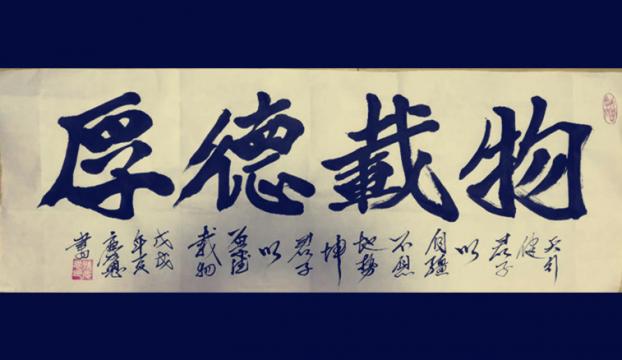 厚德載物
天行健君子以自強不息地勢坤君子以厚德載物
戊戌年
書